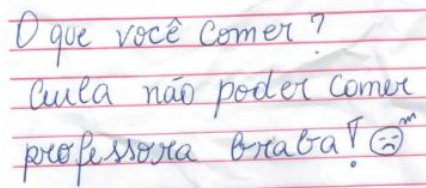 O que você comer?
Aula não poder comer
professora braba! ☹